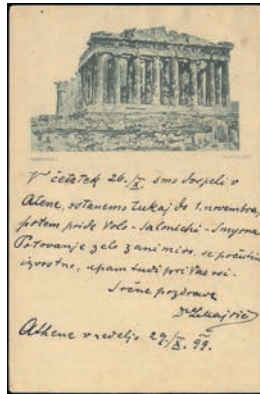 V četrtek 26./X. smo dospeli v
Atene, ostanemo tukaj do 1. novembra,
potem pride Volo - Salonichi - Smyrna
Potovanje zelo zanimivo, se počutim
izvrstno, upam tudi pri Vas vsi.
Srčne pozdrave
Athene v nedeljo 29./X. 99.